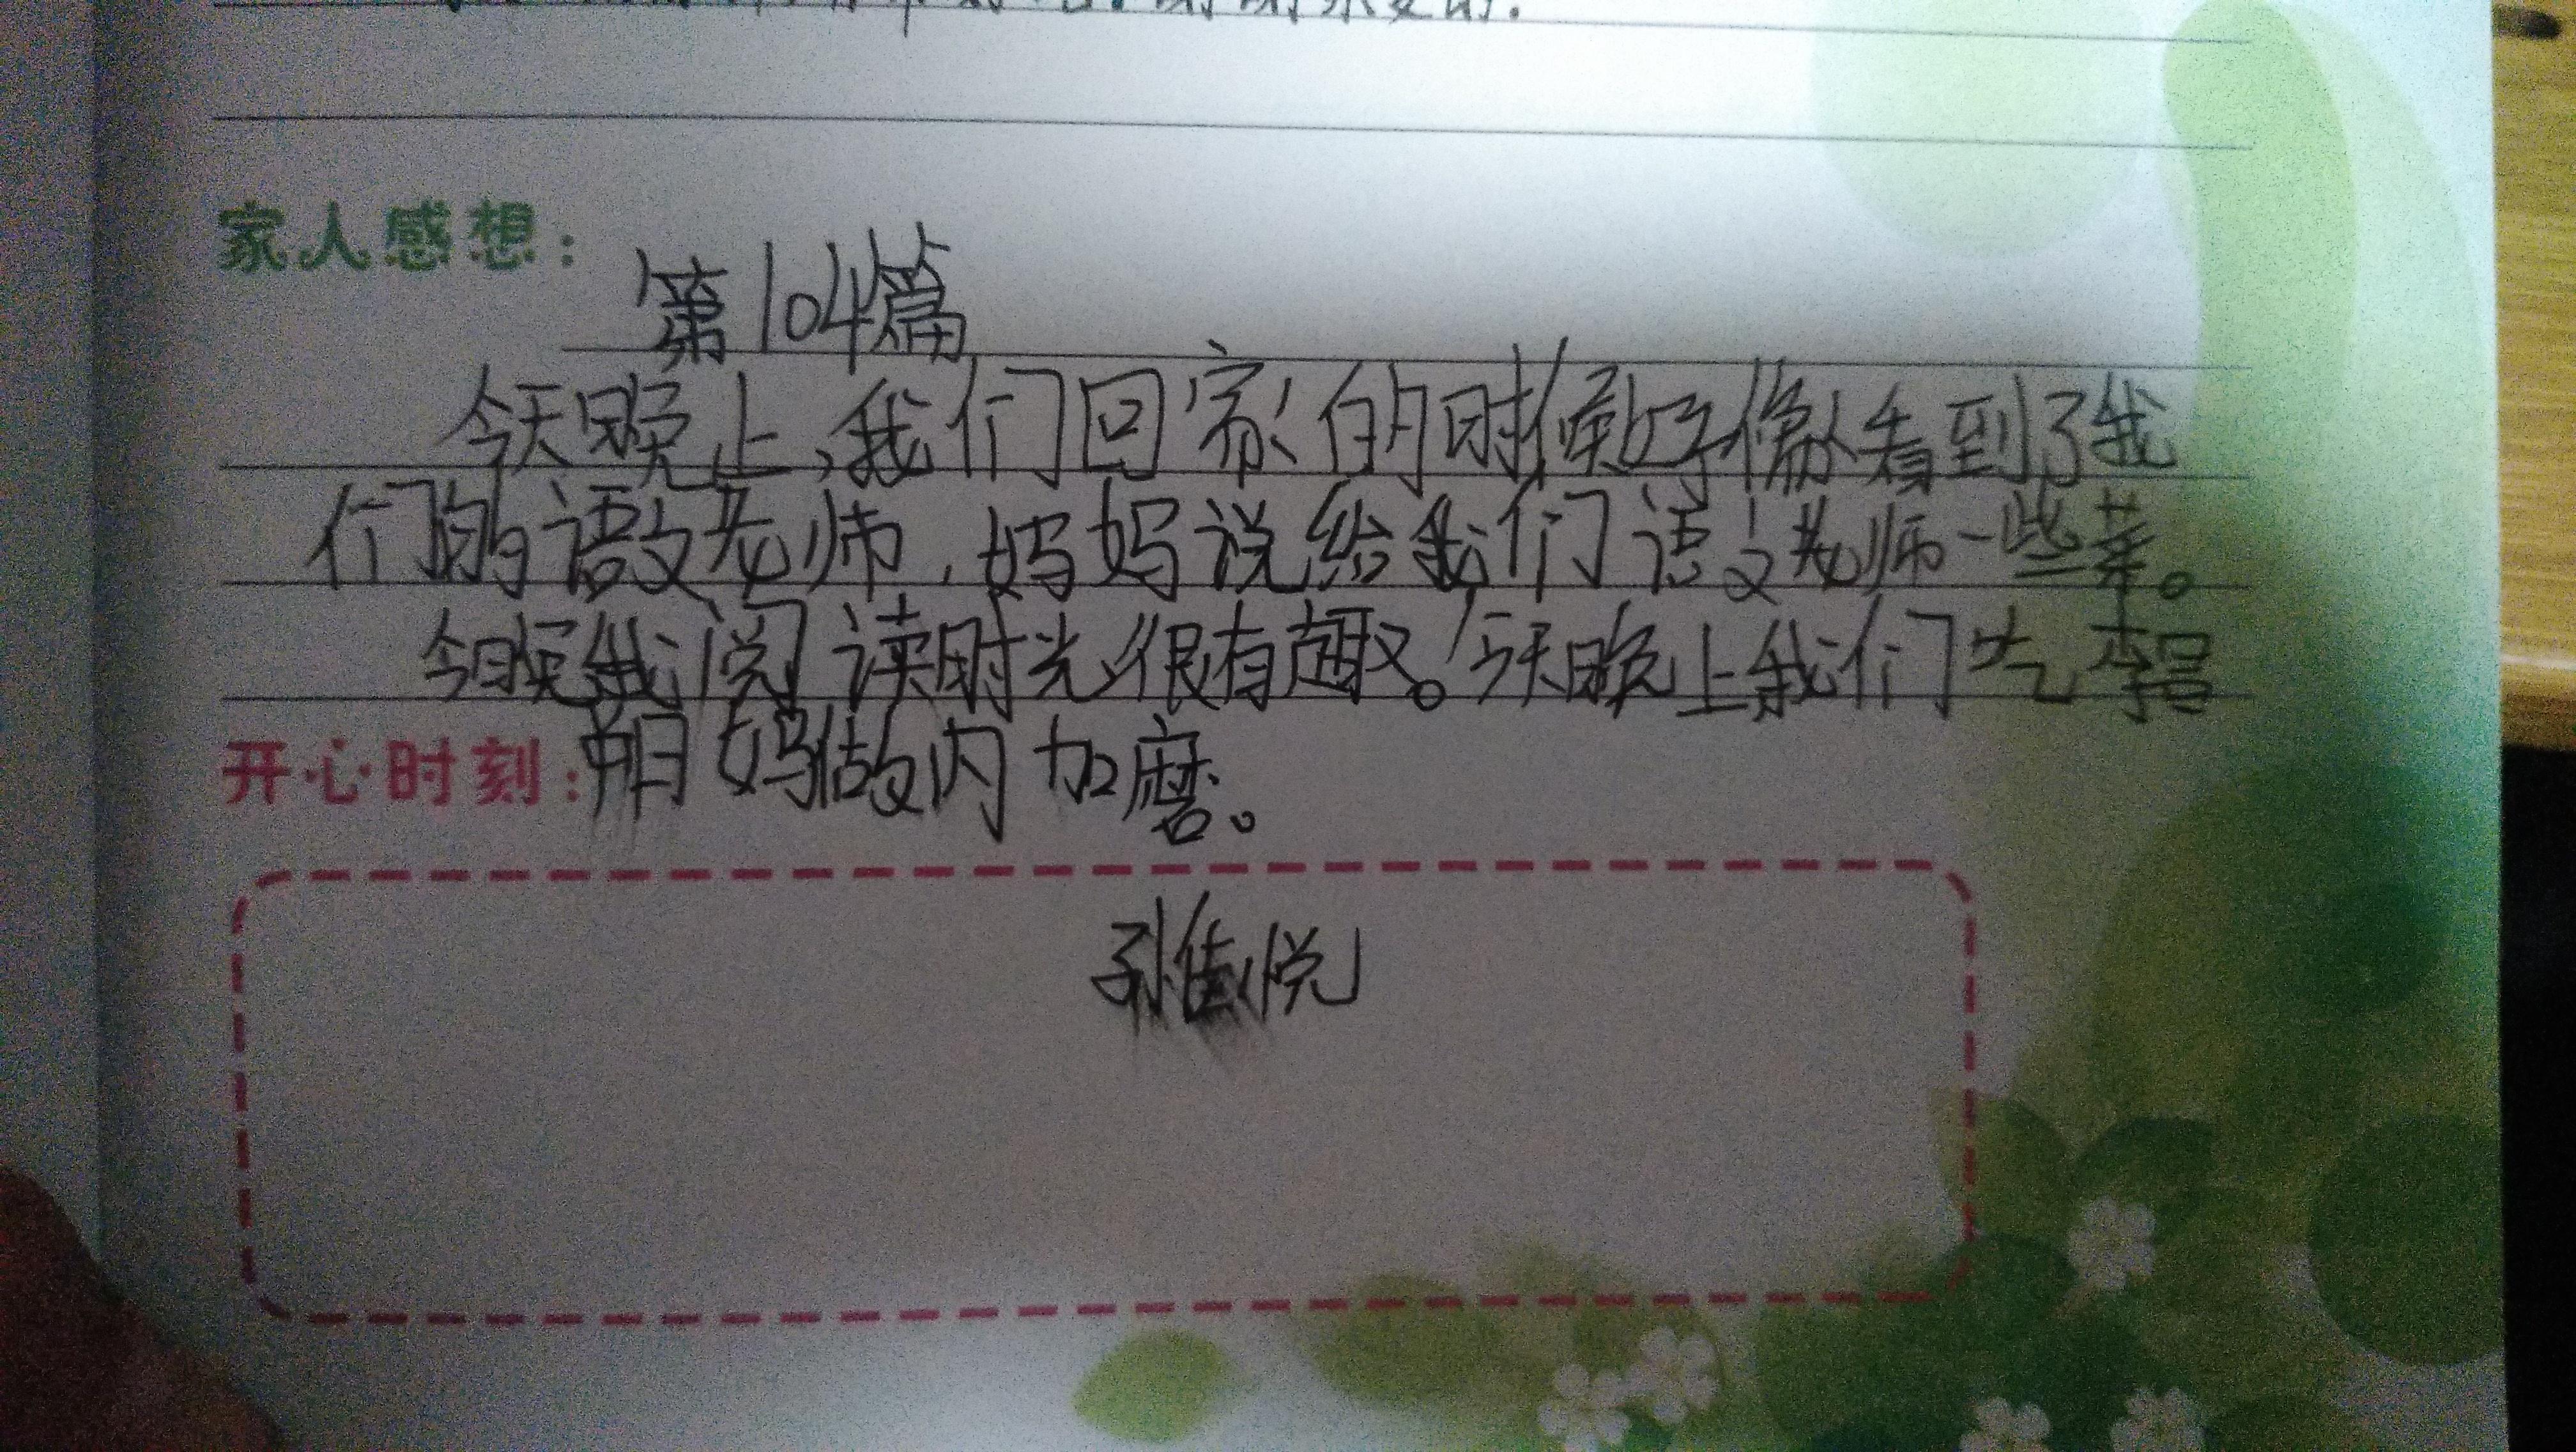 家人感想：
第104篇
今天晚上，我们回家的时候好像看到了我
们的语文老师，妈妈说给我们语文老师一些菜。
今晚我阅读时光很有趣。今天晚上我们吃李昌
开心时刻：朋妈做肉加磨。
孙佳悦